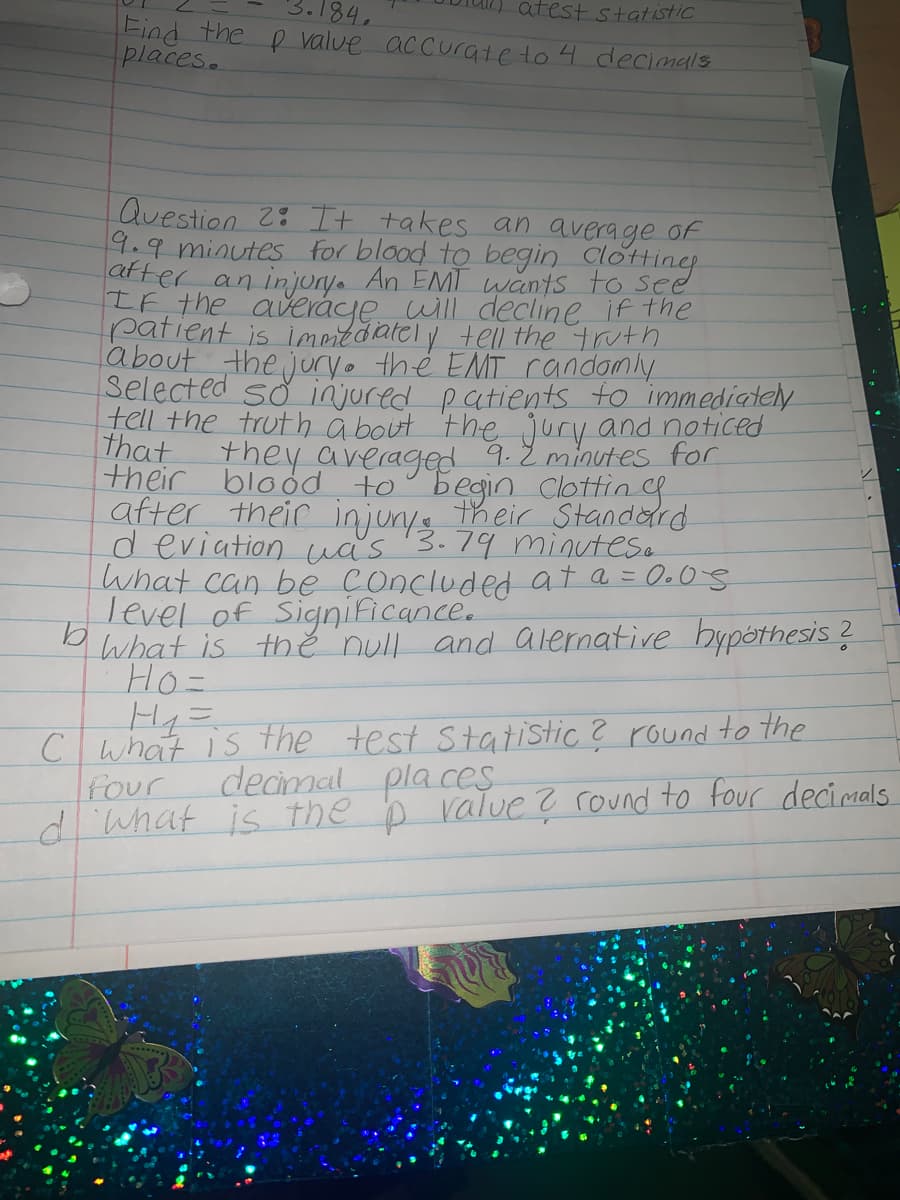 3.184. atest statistic
Find the p value accurate to 4 decimals
places.
Question 2: It takes an average of
9.9 minutes for blood to begin clotting
after an injury. An EMT wants to see
IF the average will decline if the
patient is immediately tell the truth
about the jury. the EMT randomly
Selected 50 injured patients to immediately
tell the truth about the jury and noticed
that they averaged 9.2 minutes for
their blood to begin clotting
after their injury. their Standard
deviation was 3.79 minutes.
What can be concluded at a = 0.05
level of Significance.
b What is the null and alernative hypothesis?
Ho=
H1=
C what is the test Statistic? round to the
four decimal places
d what is the p value? round to four decimals